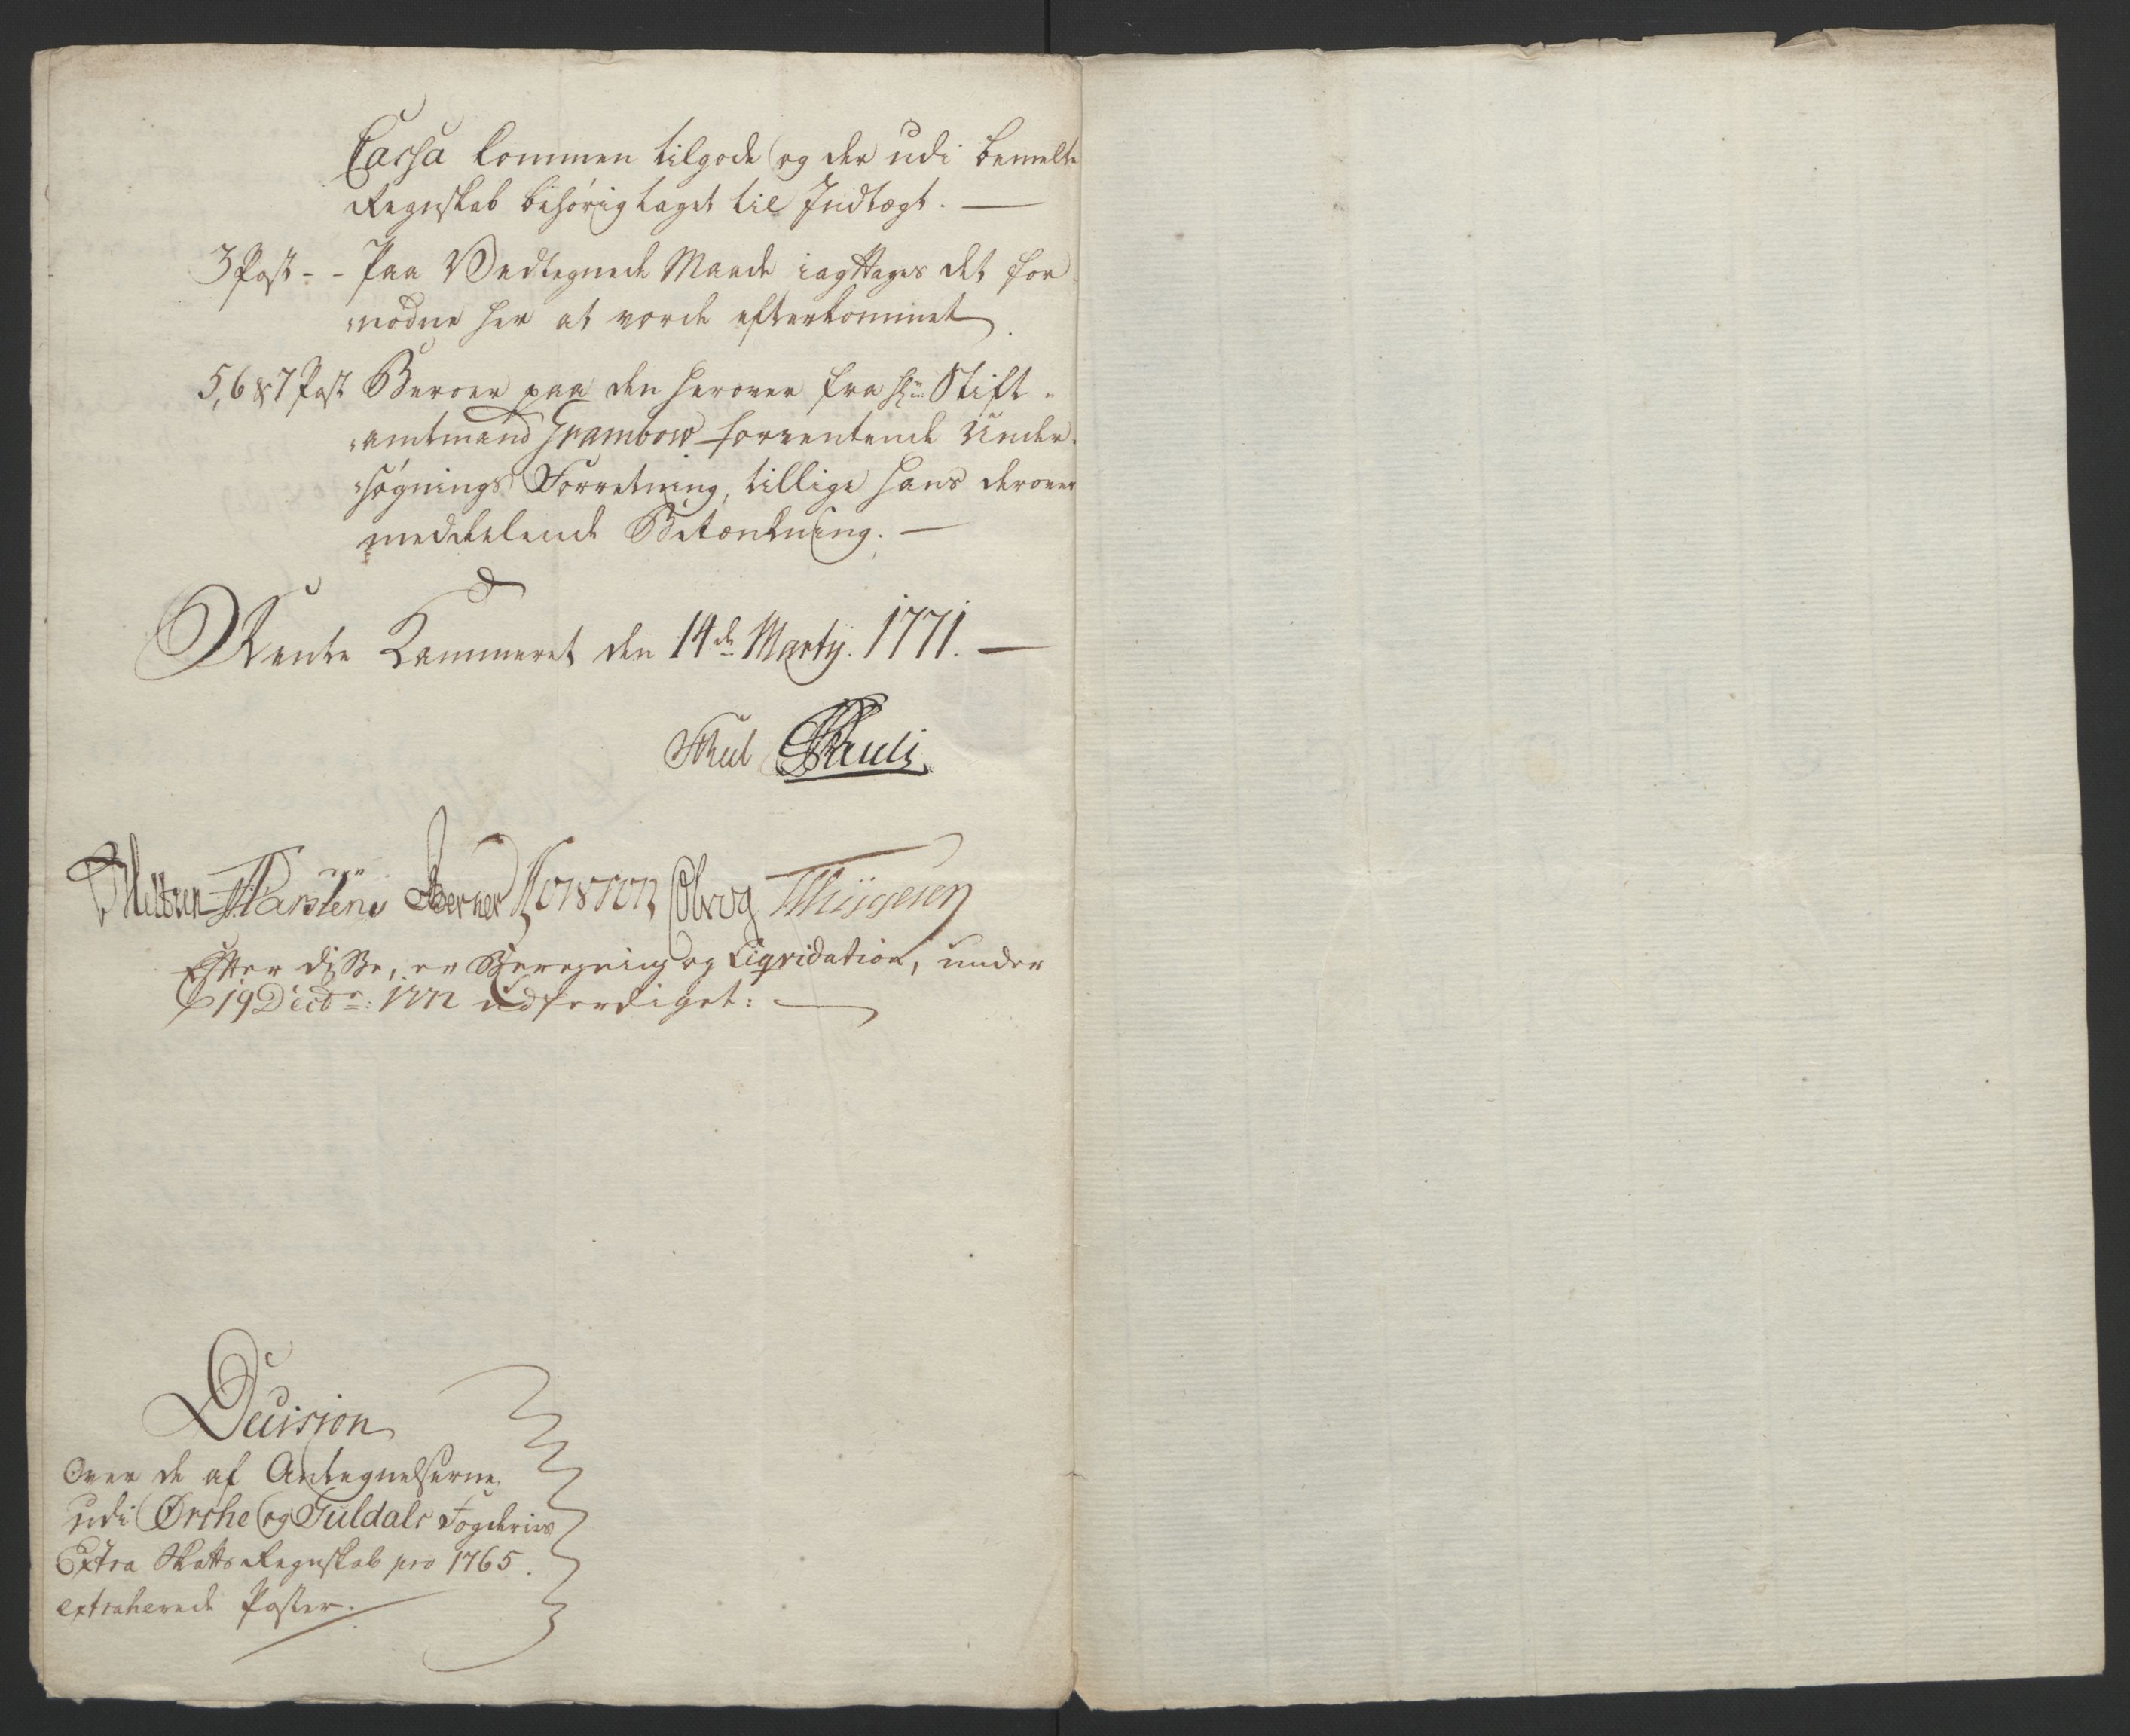 Cassa kommen tilgode og der udi bemelte
Regnskab behörig taget til Indtægt. —
3 Post - - Paa Vedtegnede Maade iagttages det for
modne her at vorde efterkommet
5, 6 & 7 Post Beroer paa den herover fra Hr: Stift-
amtmand Grambow forventende Under-
søgnings Forretning, tillige hans derover
meddelende Betænkning. —
Rente Kammeret den 14de Martij. 1771. —
Pauli
Berner Thygesen
Efter disse, en Beregning og Liqvidation, under
19 Decbr: 1772 udferdiget: —
Decision
Over de af Antegnelserne
udi Ørche og Guldals Fogderies
Extra Skatts Regnskab pro 1765.
extraherede Poster.